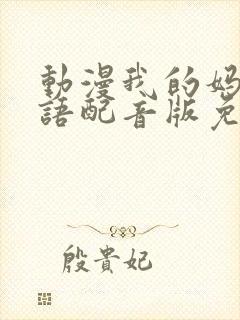 動漫我的媽
語配音版免
殷貴妃